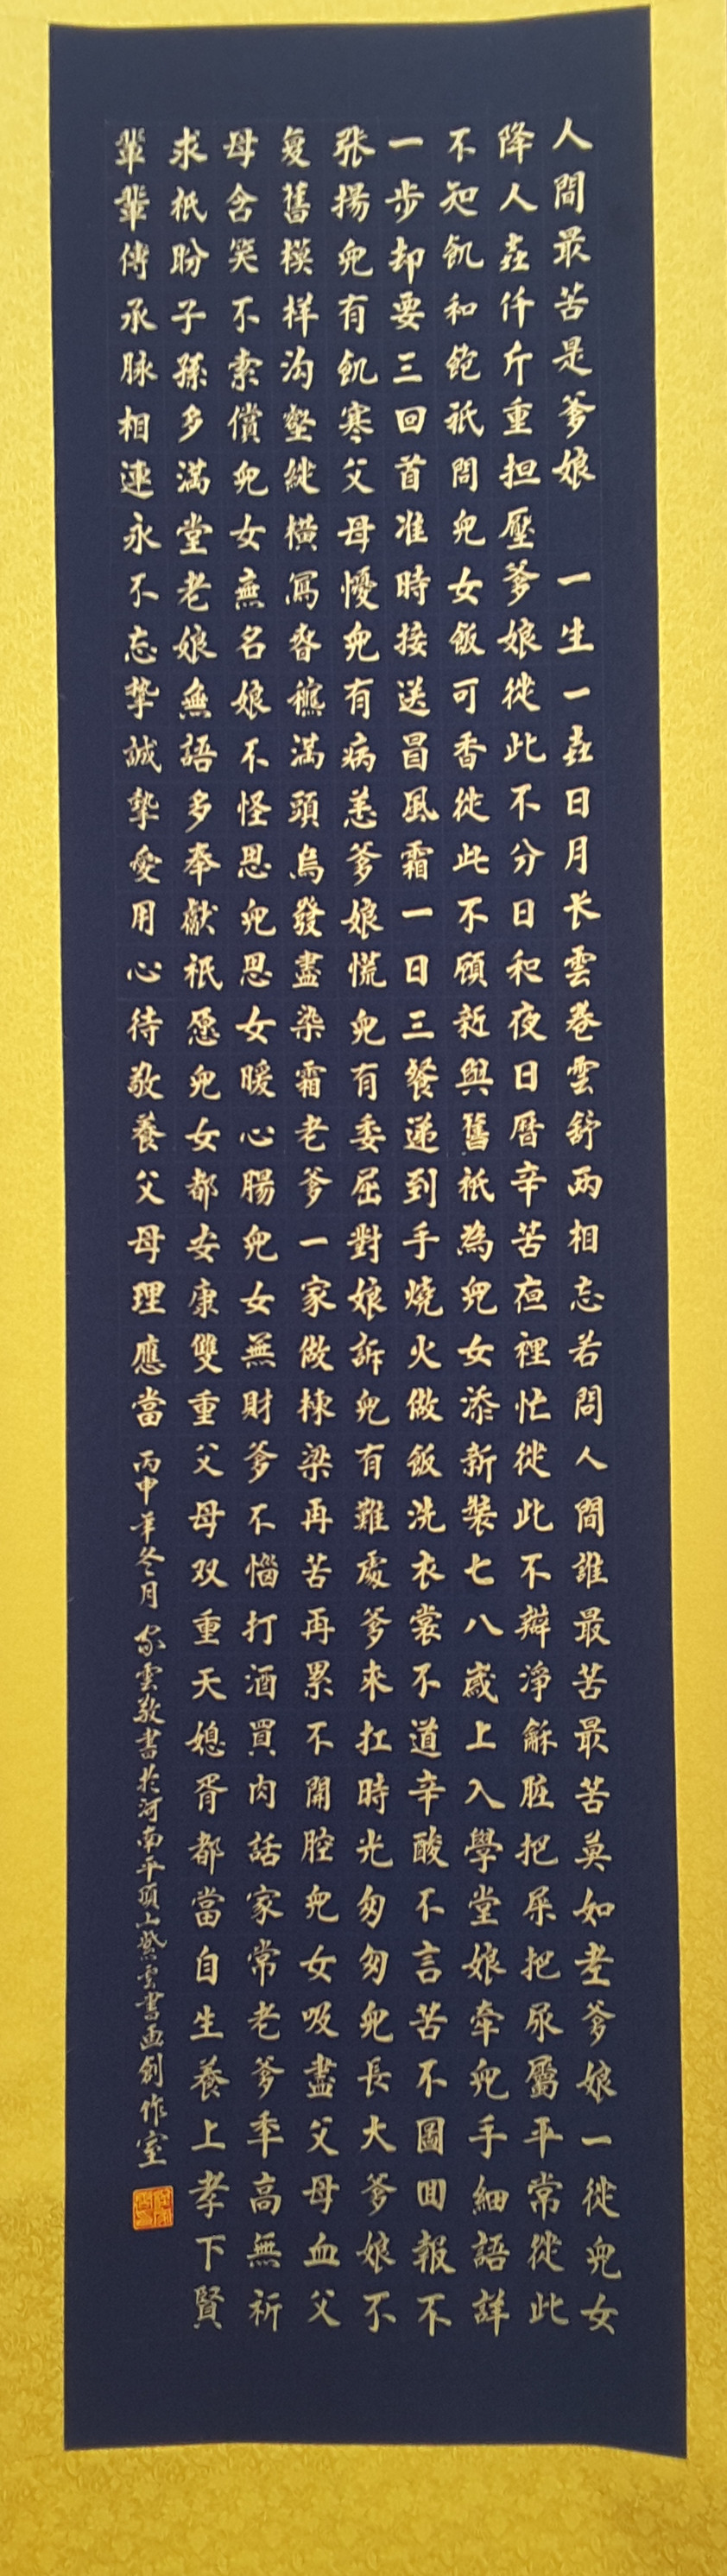 人間最苦是爹娘 一生一世日月长雲卷雲舒两相忘若問人間誰最苦最苦莫如老爹娘一從兒女
降人世仟斤重担壓爹娘從此不分日和夜日曆辛苦夜裡忙從此不辩淨龢脏把屎把尿屬平常從此
不知飢和飽祇問兒女飯可香從此不顧新與舊祇為兒女添新裝七八歲上入學堂娘牵兒手細語詳
一步却要三回首准時接送冒風霜一日三餐递到手燒火做飯洗衣裳不道辛酸不言苦不圖回報不
张揚兒有飢寒父母憂兒有病恙爹娘慌兒有委屈對娘訴兒有難處爹來扛時光匆匆兒長大爹娘不
复舊模样沟壑縱橫寫滿頭烏發盡染霜老爹一家做棟梁再苦再累不開腔兒女吸盡父母血父
母含笑不索償兒女無名娘不怪思兒思女暖心腸兒女無財爹不惱打酒買肉話家常老爹年高無祈
求祇盼子孫多滿堂老娘無語多奉獻祇愿兒女都安康雙重父母双重天媳胥都當自生養上孝下賢
輩輩傳承脉相連永不忘挚誠摯愛用心待敬養父母理應當 丙申年冬月 雲敬書於河南平頂山紫雲書画創作室